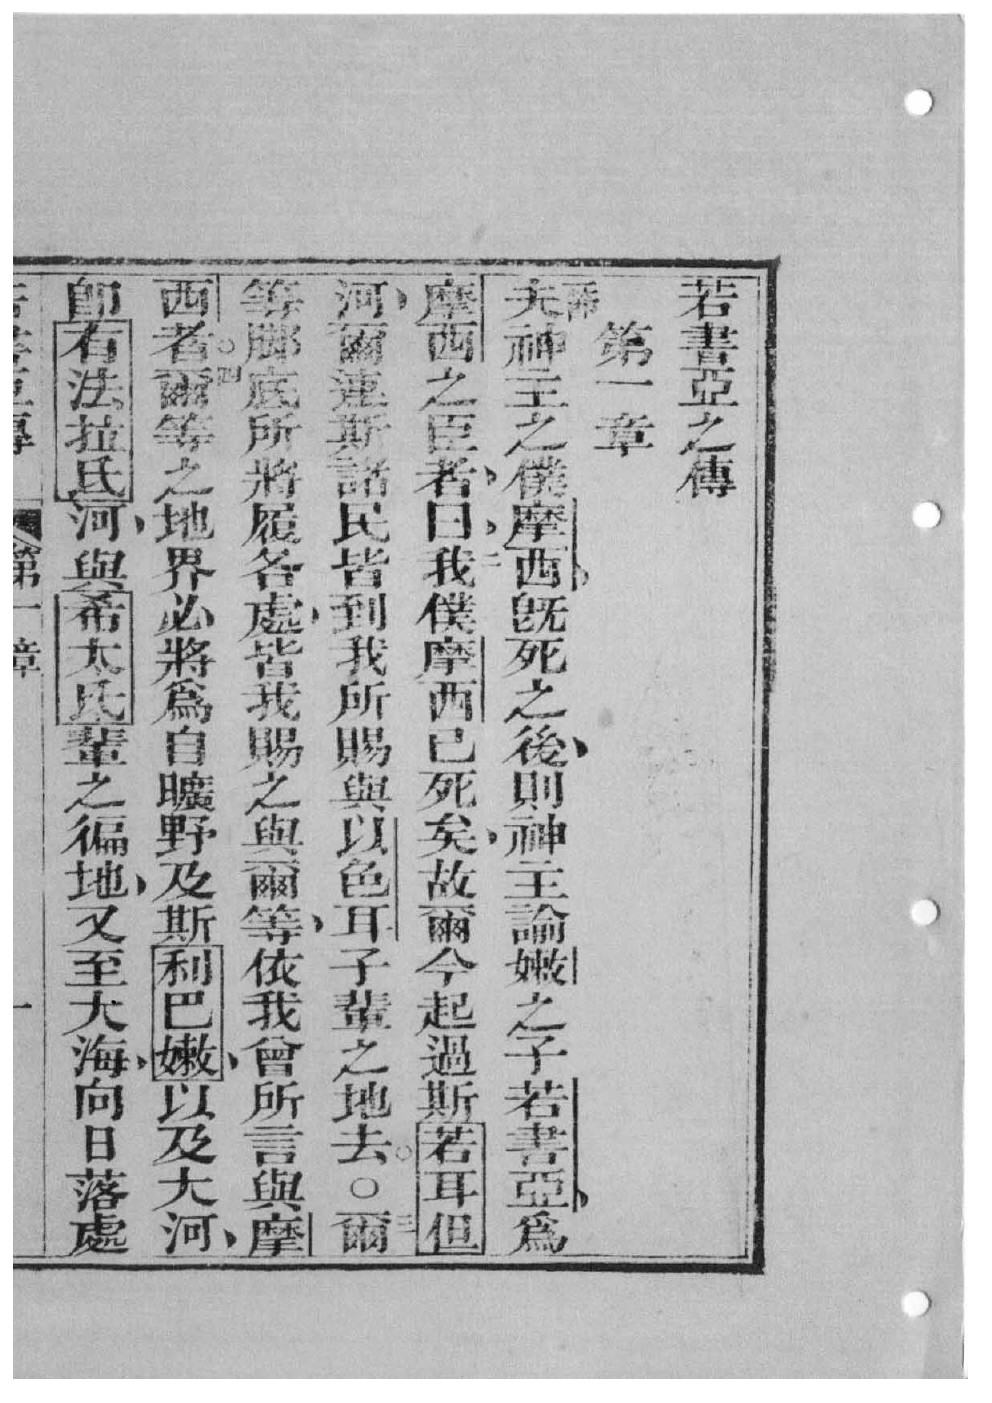 若書亞之傳
第一章
夫神主之僕摩西旣死之後則神主諭嫩之子若書亞爲
摩西之臣者曰二我僕摩西已死矣故爾今起過斯若耳但
河爾連斯諸民皆到我所賜與以色耳子輩之地去○三爾
等腳底所將履各處皆我賜之與爾等依我曾所言與摩
西者四爾等之地界必將爲自曠野及斯利巴嫩以及大河
卽有法拉氐河與希太氐輩之徧地又至大海向日落處
若書亞傳 第一章 一